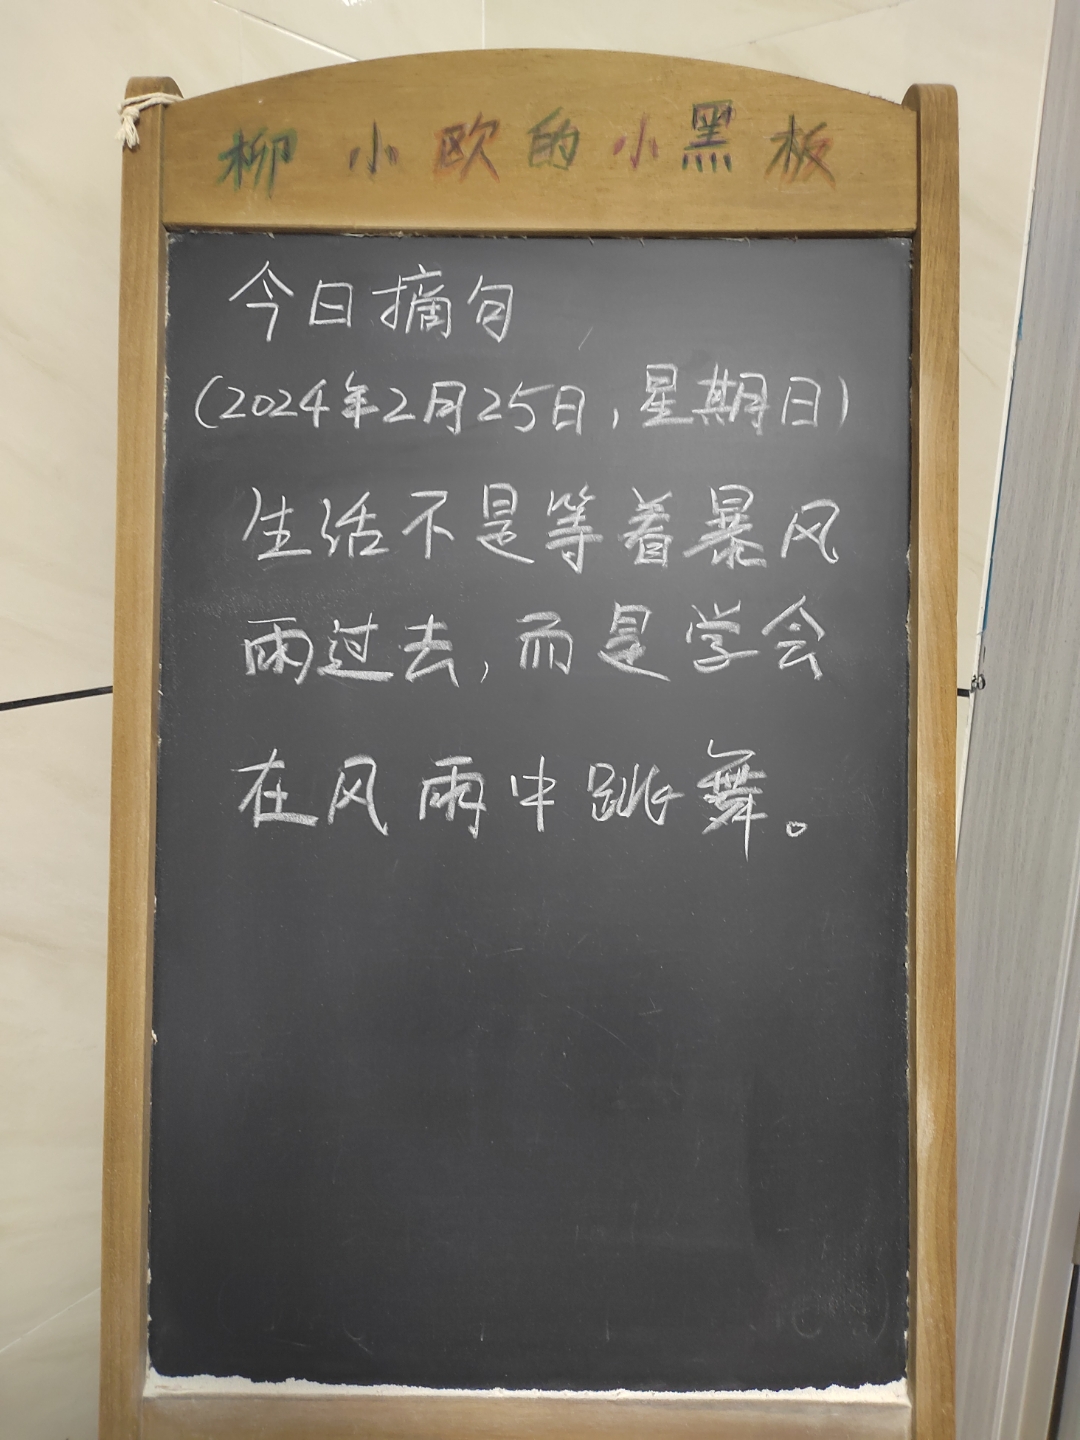 柳小欧的小黑板
今日摘句
(2024年2月25日,星期日)
生活不是等着暴风
雨过去,而是学会
在风雨中跳舞。